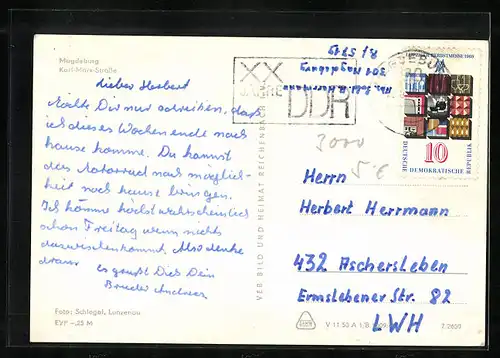 Magdeburg
Karl-Marx-Straße
Lieber Herbert
Möchte Dir nur schreiben, daß
ich dieses Wochenende nach
hause komme. Du kannst
das Motorrad nach möglich-
keit nach hause bringen.
Ich komme höchstwahrscheinlich
schon Freitag wenn nichts
dazwischenkommt. Also denke
dran
es grüßt Dich Dein
Bruder Andreas
Foto: Schlegel, Lunzenau
EVP -,25 M
VEB BILD UND HEIMAT REICHENBACH
XX
JAHRE
DDR
301 Magdeburg
HERBSTMESSE 1969
10
DEUTSCHE
DEMOKRATISCHE
REPUBLIK
3000
5 €
Herrn
Herbert Herrmann
432 Aschersleben
Ermslebener Str. 82
LWH
V 11 50 A 1/B